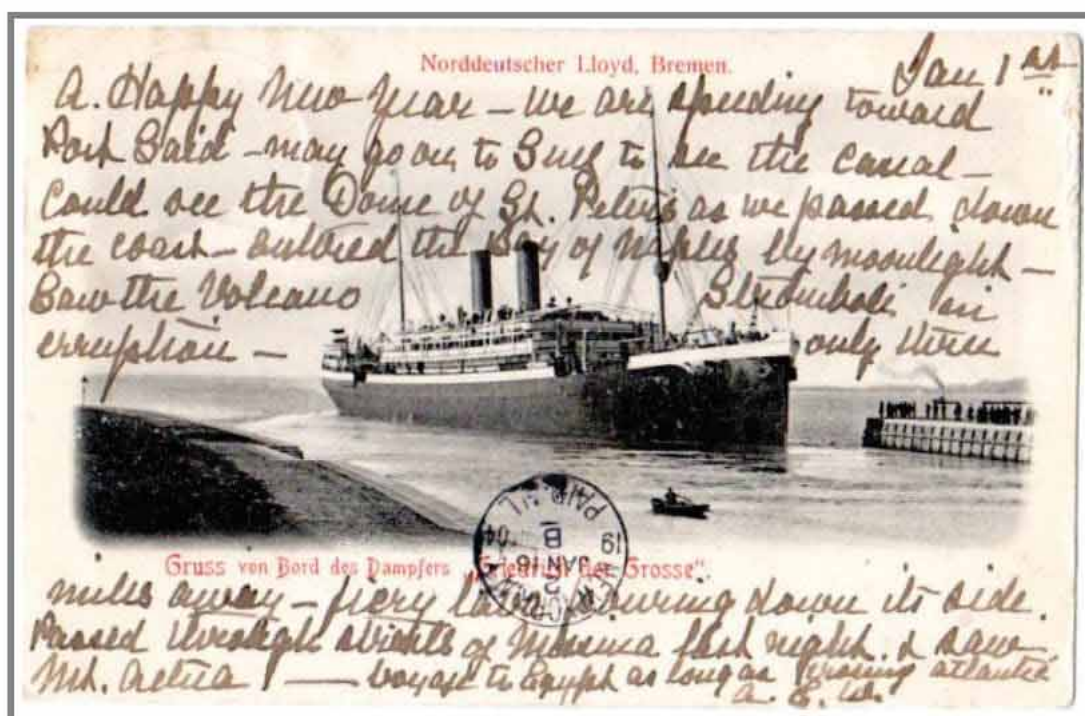 Norddeutscher Lloyd, Bremen.
Jan 1st
A. Happy New Year – We are speeding toward
Port Said – may go on to Suez to see the canal –
Could see the Dome of St. Peters as we passed down
the coast – entered the Bay of Naples by moonlight –
Saw the Volcano Stromboli in
erruption – only three
Gruss von Bord des Dampfers „Friedrich der Grosse".
miles away – fiery lava pouring down its side.
Passed through straits of Messina last night. & saw
Mt. Aetna – voyage to Egypt as long as crossing atlantic
A. E. W.
PAID
B
19 JAN 16 '04